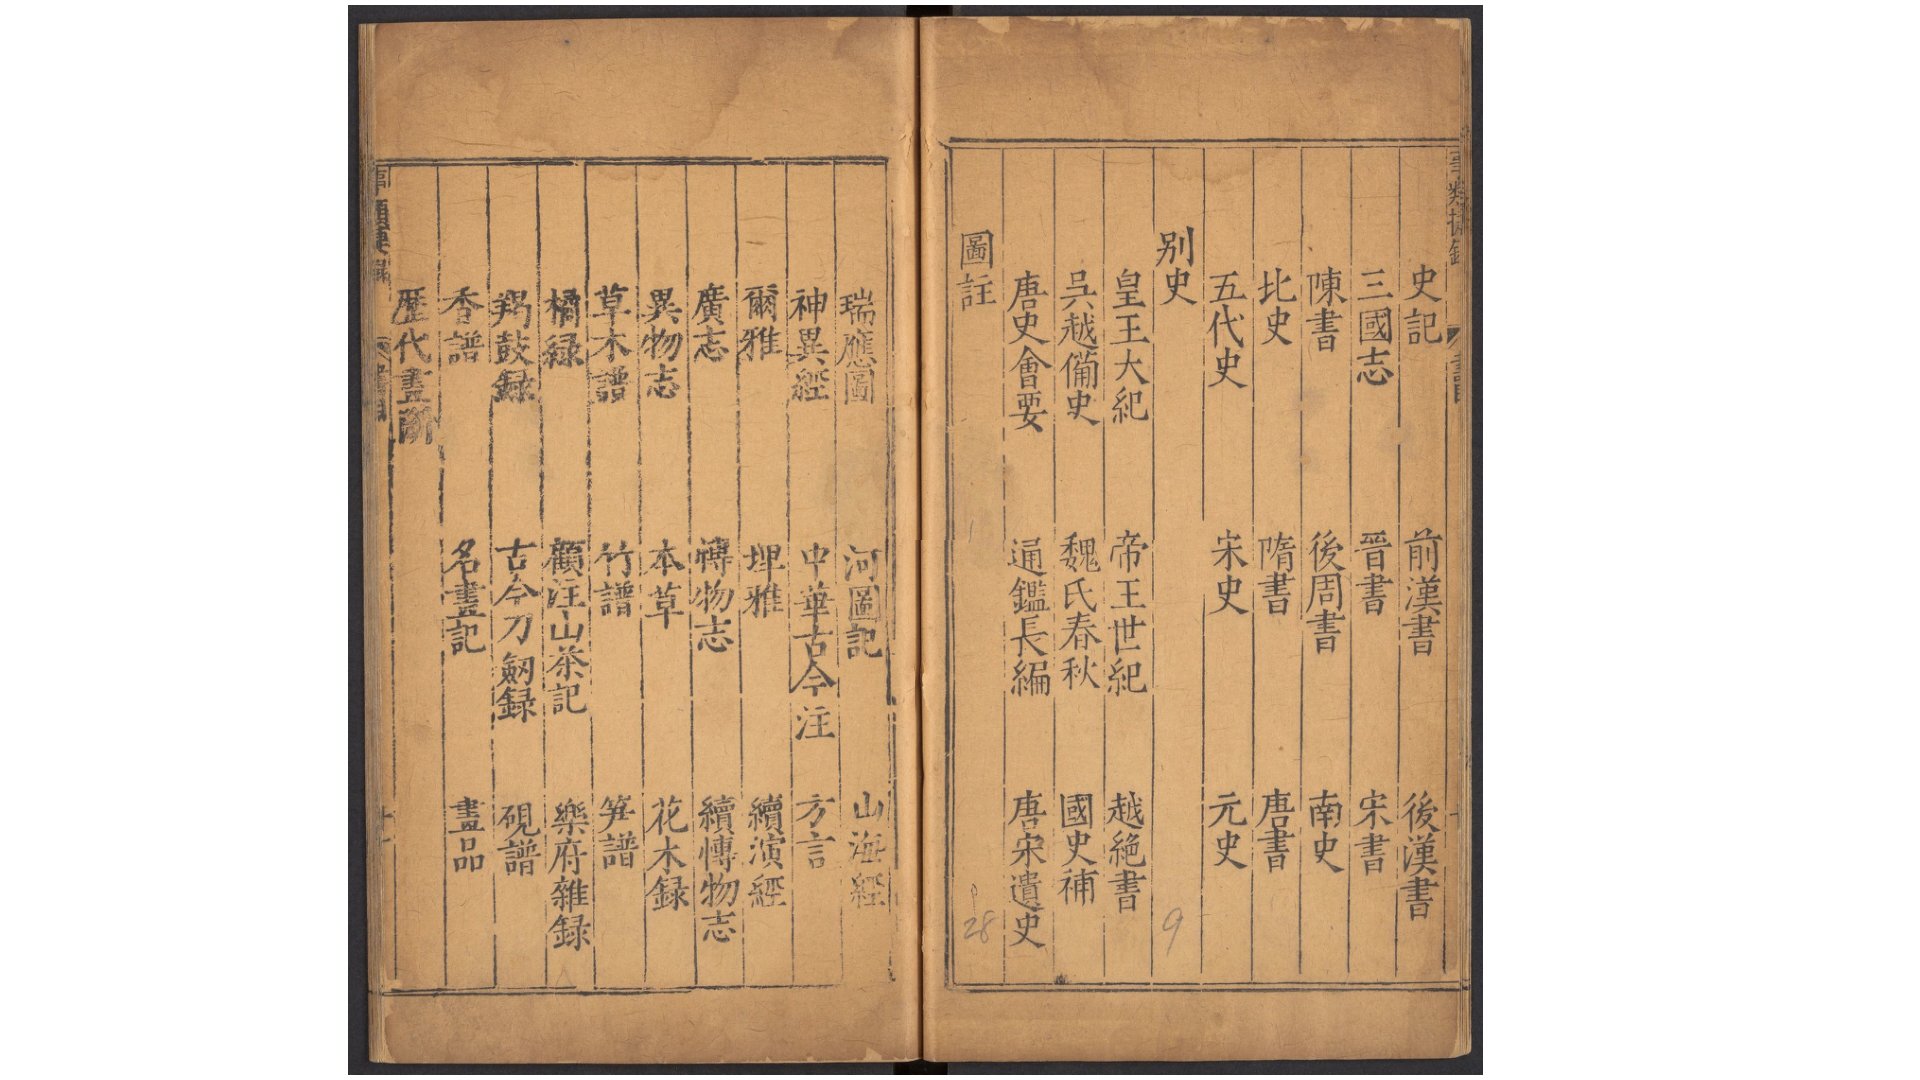 史記 前漢書 後漢書
三國志 晉書 宋書
陳書 後周書 南史
北史 隋書 唐書
五代史 宋史 元史
别史
皇王大紀 帝王世紀 越絶書
吳越備史 魏氏春秋 國史補
唐史會要 通鑑長編 唐宋遺史
圖註
9
28
瑞應圖 河圖記 山海經
神異經 中華古今注 方言
爾雅 埤雅 續演經
廣志 博物志 續博物志
異物志 本草 花木録
草木譜 竹譜 笋譜
橘録 顧渚山茶記 樂府雜録
羯鼓録 古今刀劒録 硯譜
香譜 名畫記 畫品
歷代畫斷